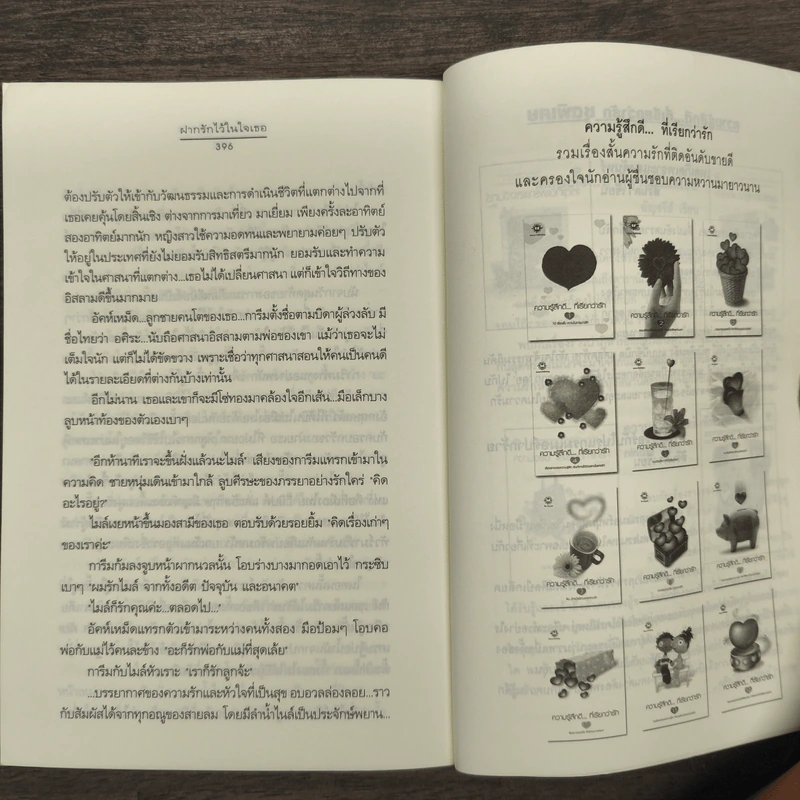 ฝากรักไว้ในใจเธอ
396
ต้องปรับตัวให้เข้ากับวัฒนธรรมและการดำเนินชีวิตที่แตกต่างไปจากที่
เธอเคยคุ้นโดยสิ้นเชิง ต่างจากการมาเที่ยว มาเยี่ยม เพียงครั้งละอาทิตย์
สองอาทิตย์มากนัก หญิงสาวใช้ความอดทนและพยายามค่อยๆ ปรับตัว
ให้อยู่ในประเทศที่ยังไม่ยอมรับสิทธิสตรีมากนัก ยอมรับและทำความ
เข้าใจในศาสนาที่แตกต่าง...เธอไม่ได้เปลี่ยนศาสนา แต่ก็เข้าใจวิถีทางของ
อิสลามดีขึ้นมากมาย
อัคห์เหม็ด...ลูกชายคนโตของเธอ...การีมตั้งชื่อตามบิดาผู้ล่วงลับ มี
ชื่อไทยว่า อศิระ...นับถือศาสนาอิสลามตามพ่อของเขา แม้ว่าเธอจะไม่
เต็มใจนัก แต่ก็ไม่ได้ขัดขวาง เพราะเชื่อว่าทุกศาสนาสอนให้คนเป็นคนดี
ได้ในรายละเอียดที่ต่างกันบ้างเท่านั้น
อีกไม่นาน เธอและเขาก็จะมีโซ่ทองมาคล้องใจอีกเส้น...มือเล็กบาง
ลูบหน้าท้องของตัวเองเบาๆ
"อีกห้านาทีเราจะขึ้นฝั่งแล้วนะไมล์" เสียงของการีมแทรกเข้ามาใน
ความคิด ชายหนุ่มเดินเข้ามาใกล้ ลูบศีรษะของภรรยาอย่างรักใคร่ "คิด
อะไรอยู่?"
ไมล์เงยหน้าขึ้นมองสามีของเธอ ตอบรับด้วยรอยยิ้ม "คิดเรื่องเก่าๆ
ของเราค่ะ"
การีมก้มลงจูบหน้าผากนวลนั้น โอบร่างบางมากอดเอาไว้ กระซิบ
เบาๆ "ผมรักไมล์ จากทั้งอดีต ปัจจุบัน และอนาคต"
"ไมล์ก็รักคุณค่ะ...ตลอดไป..."
อัคห์เหม็ดแทรกตัวเข้ามาระหว่างคนทั้งสอง มือป้อมๆ โอบคอ
พ่อกับแม่ไว้คนละข้าง "อะก็รักพ่อกับแม่ที่สุดเล้ย"
การีมกับไมล์หัวเราะ "เราก็รักลูกจ้ะ"
...บรรยากาศของความรักและหัวใจที่เป็นสุข อบอวลล่องลอย...ราว
กับสัมผัสได้จากทุกอณูของสายลม โดยมีลำน้ำไนล์เป็นประจักษ์พยาน...
ความรู้สึกดี... ที่เรียกว่ารัก
รวมเรื่องสั้นความรักที่ติดอันดับขายดี
และครองใจนักอ่านผู้ชื่นชอบความหวานมายาวนาน
ความรู้สึกดี... ที่เรียกว่ารัก
ความรู้สึกดี... ที่เรียกว่ารัก
ความรู้สึกดี... ที่เรียกว่ารัก
ความรู้สึกดี... ที่เรียกว่ารัก
ความรู้สึกดี... ที่เรียกว่ารัก
ความรู้สึกดี... ที่เรียกว่ารัก
ความรู้สึกดี... ที่เรียกว่ารัก
ความรู้สึกดี... ที่เรียกว่ารัก
ความรู้สึกดี... ที่เรียกว่ารัก
ความรู้สึกดี... ที่เรียกว่ารัก
ความรู้สึกดี... ที่เรียกว่ารัก
ความรู้สึกดี... ที่เรียกว่ารัก